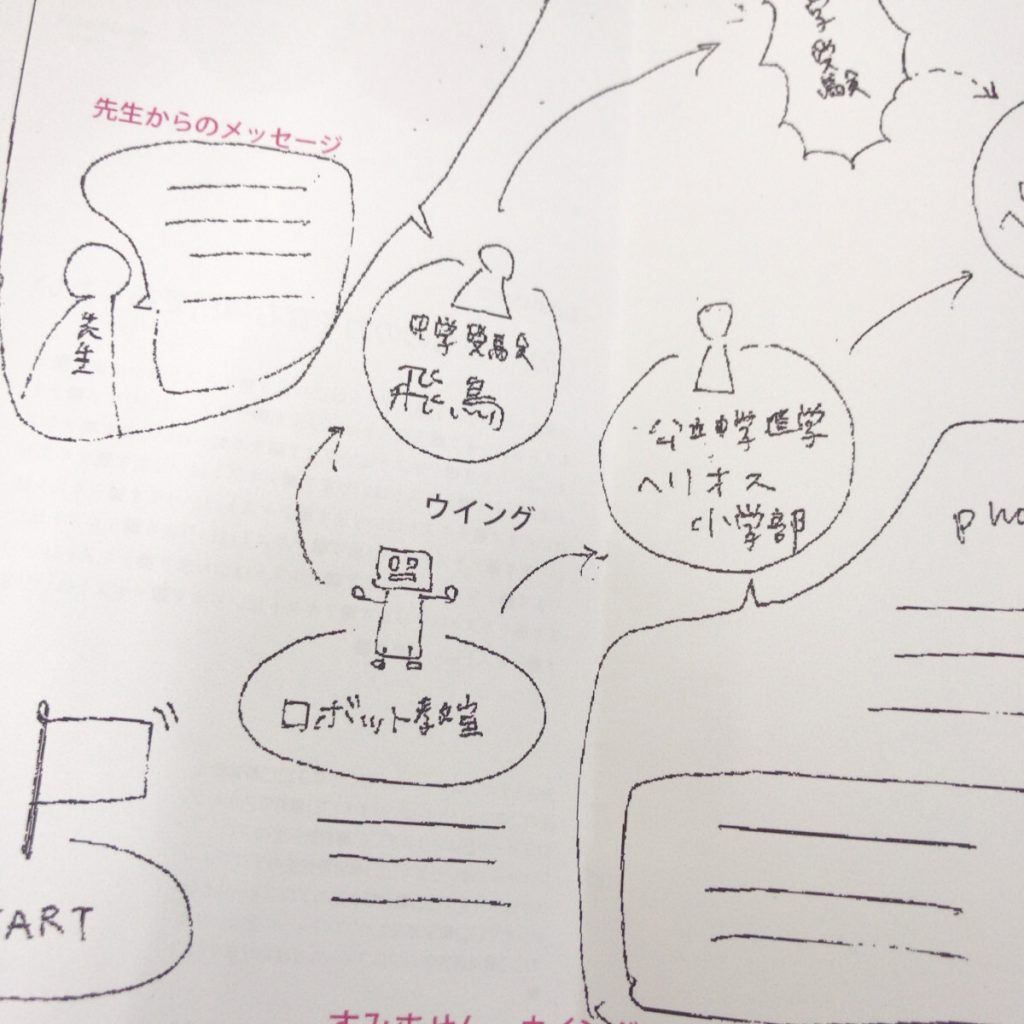 学受験
先生からのメッセージ
先生
中学受験
飛鳥
公立中学進学
ヘリオス
小学部
ウイング
pho
ロボット教室
TART
すみません、ウイング